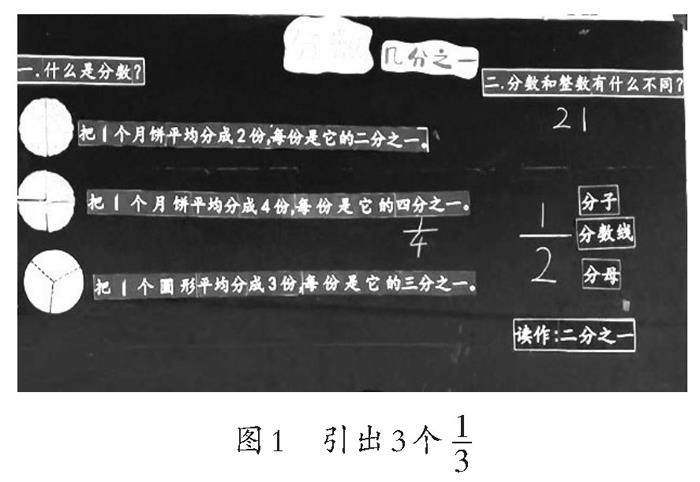 分数
几分之一
一.什么是分数?
二.分数和整数有什么不同?
21
把1个月饼平均分成2份,每份是它的二分之一。
把1个月饼平均分成4份,每份是它的四分之一。
1/4
1/2
分子
分数线
分母
把1个圆形平均分成3份,每份是它的三分之一。
读作:二分之一
图1 引出3个1/3